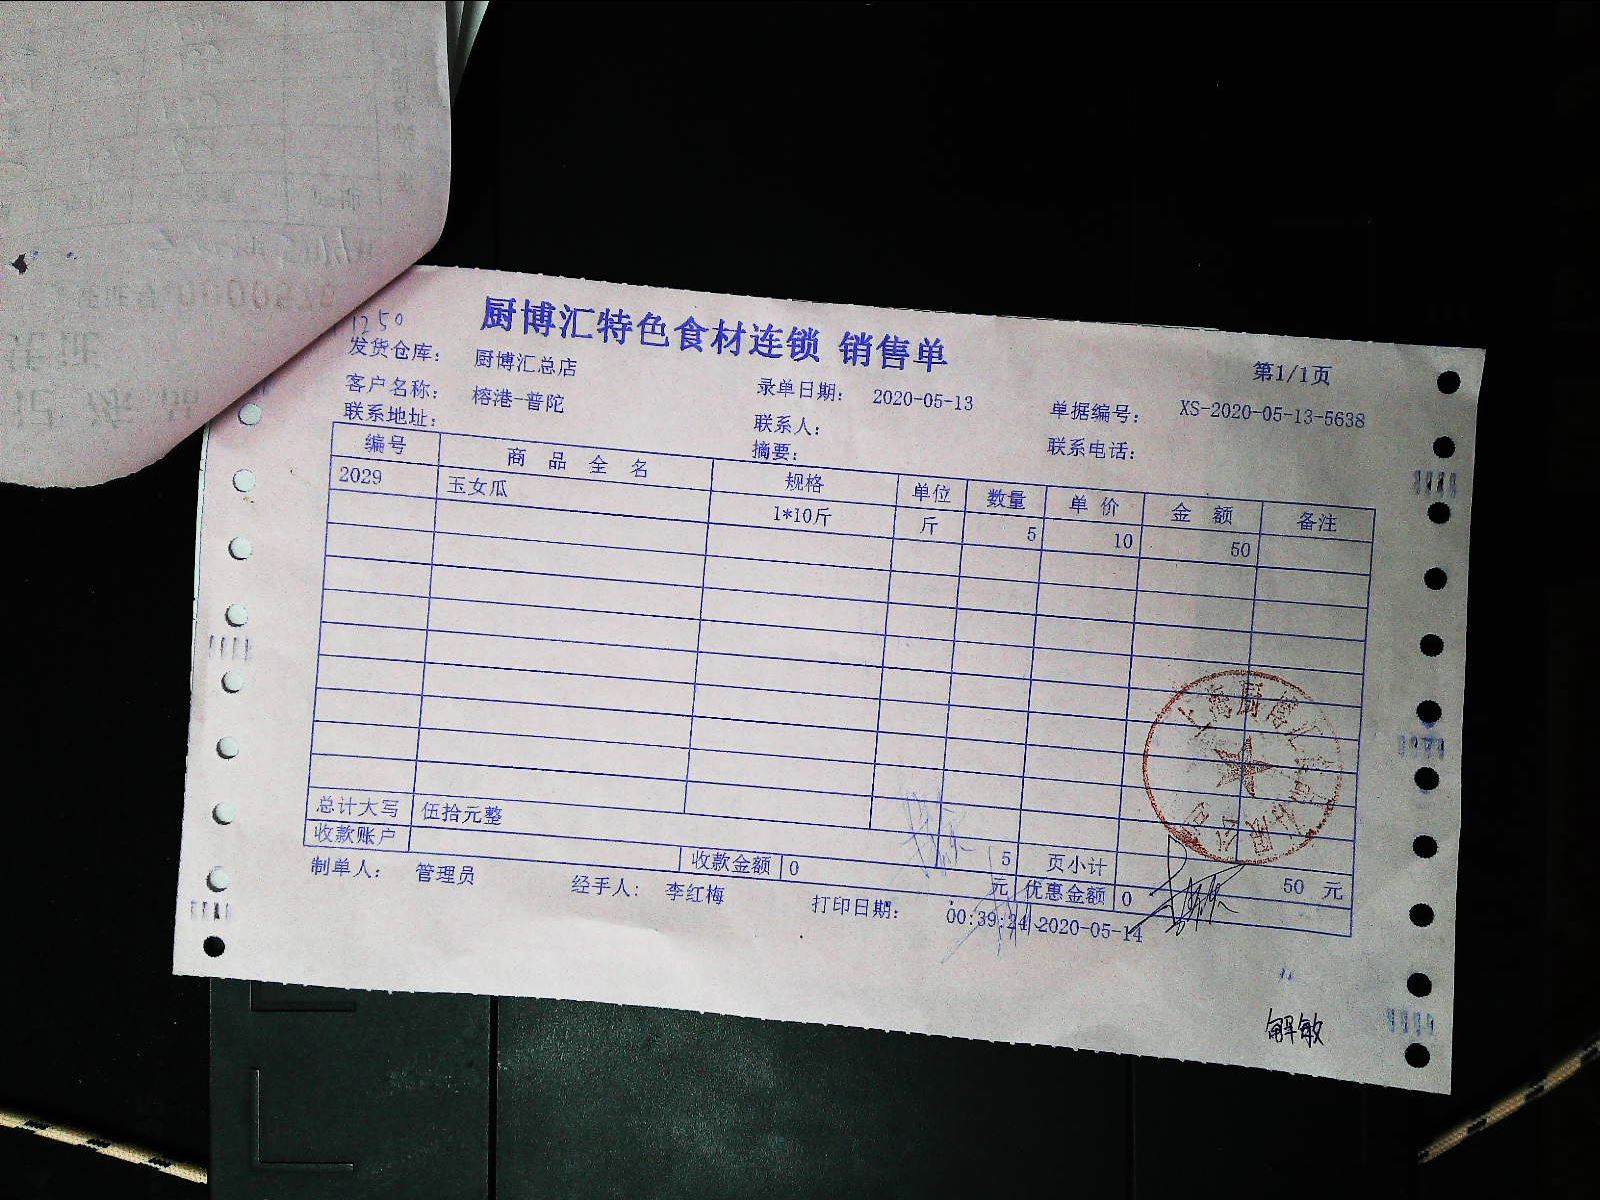 1250
厨博汇特色食材连锁 销售单
第1/1页
发货仓库： 厨博汇总店
录单日期： 2020-05-13
单据编号： XS-2020-05-13-5638
客户名称： 榕港-普陀
联系人：
联系电话：
联系地址：
摘要：
编号 商品全名 规格 单位 数量 单价 金额 备注
2029 玉女瓜 1*10斤 斤 5 10 50
总计大写 伍拾元整 5 页小计 50 元
收款账户 收款金额 0 元 优惠金额 0
制单人： 管理员 经手人： 李红梅 打印日期： 00:39:24 2020-05-14
解敏